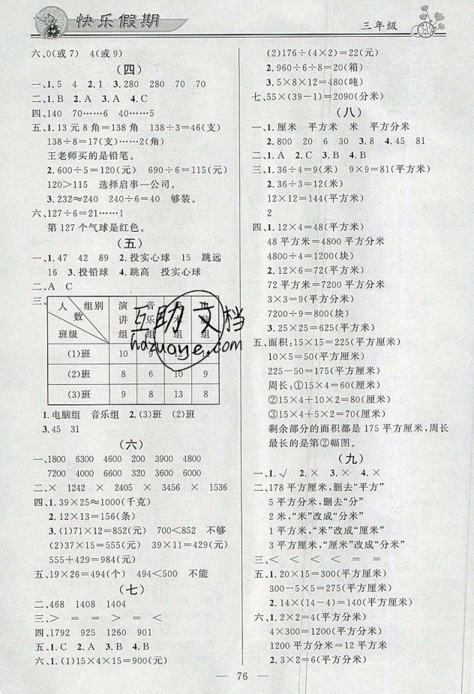 快乐假期
三年级
六、0(或7) 4(或9)
(四)
一、1.5 4 2.1 3.280 280 70 70
二、1.B 2.A 3.A 4.C
四、140 70……6 40……5
五、1.13元8角=138角 138÷3=46(支)
138÷8=17(支)……2(角)
王老师买的是铅笔。
2.600÷5=120(米) 690÷6=115(米)
120>115 选择启事一公司。
3.232≈240 240÷6=40 够装。
六、127÷6=21……1
第127个气球是红色。
(五)
一、1.47 42 89 2.投实心球 15 跳远
16 3.投铅球 4.跳高 投实心球
二、A C
三、
人数 组别 班级
演讲组 音乐组
(1)班 10 9
(2)班 8 6 10 9
(3)班 9 8 13 8
1.电脑组 音乐组 2.(3)班 (2)班
3.45 31
(六)
一、1800 6300 4600 720 4800
7200 4000 6600 320 3600
二、× 1242 × 2405 × 3456 × 1536
四、1.39×25≈1000(千克)
2.12×13=156(条)
3.(1)71×12=852(元) 700<852 不够
(2)37×15=555(元) 29×15=429(元)
555+429=984(元)
五、19×26=494(个) 494<500 不能
(七)
二、468 1408 1404
三、> = > < = >
四、1792 925 1280 1508
六、1.(1)15×4×15=900(元)
(2)176÷(4×2)=22(元)
2.960÷6÷8=20(箱)
3.5×8×12=480(吨)
七、55×(39-1)=2090(分米)
(八)
一、1.厘米 平方厘米 米 平方分米
2.800 20 6 30 3.2 4.8 5.45 81
二、1.A 2.C 3.B 4.B
三、1.36÷4=9(厘米) 9×9=81(平方厘米)
2.36÷3=12(米)
12×12=144(平方米)
四、1.12×4=48(平方米)
48平方米=4800平方分米
4800÷4=1200(块)
2.12×6=72(平方米)
72平方米=7200平方分米
3×3=9(平方分米)
7200÷9=800(块)
3.25×25=625(平方米)
五、面积:15×15=225(平方厘米)
10×5=50(平方厘米)
225-50=175(平方厘米)
周长:①15×4=60(厘米)
②15×4+10×2=80(厘米)
③15×4+5×2=70(厘米)
剩余部分的面积都是175平方厘米,周长
最长的是第②幅图。
(九)
一、1.√ 2.× 3.× 4.×
二、178平方厘米,删去“平方”
5平方分米,删去“分”
2米,“米”改成“分米”
9米,“米”改成“厘米”
3平方厘米,“厘米”改成“分米”
三、< < < < = =
五、1.20×15=300(平方厘米)
2.14×(14-4)=140(平方厘米)
六、1.2×2=4(平方分米)
4×300=1200(平方分米)
1200平方分米=12平方米
2.3×2=6(平方米)
76
互助文档
hazuoye.com